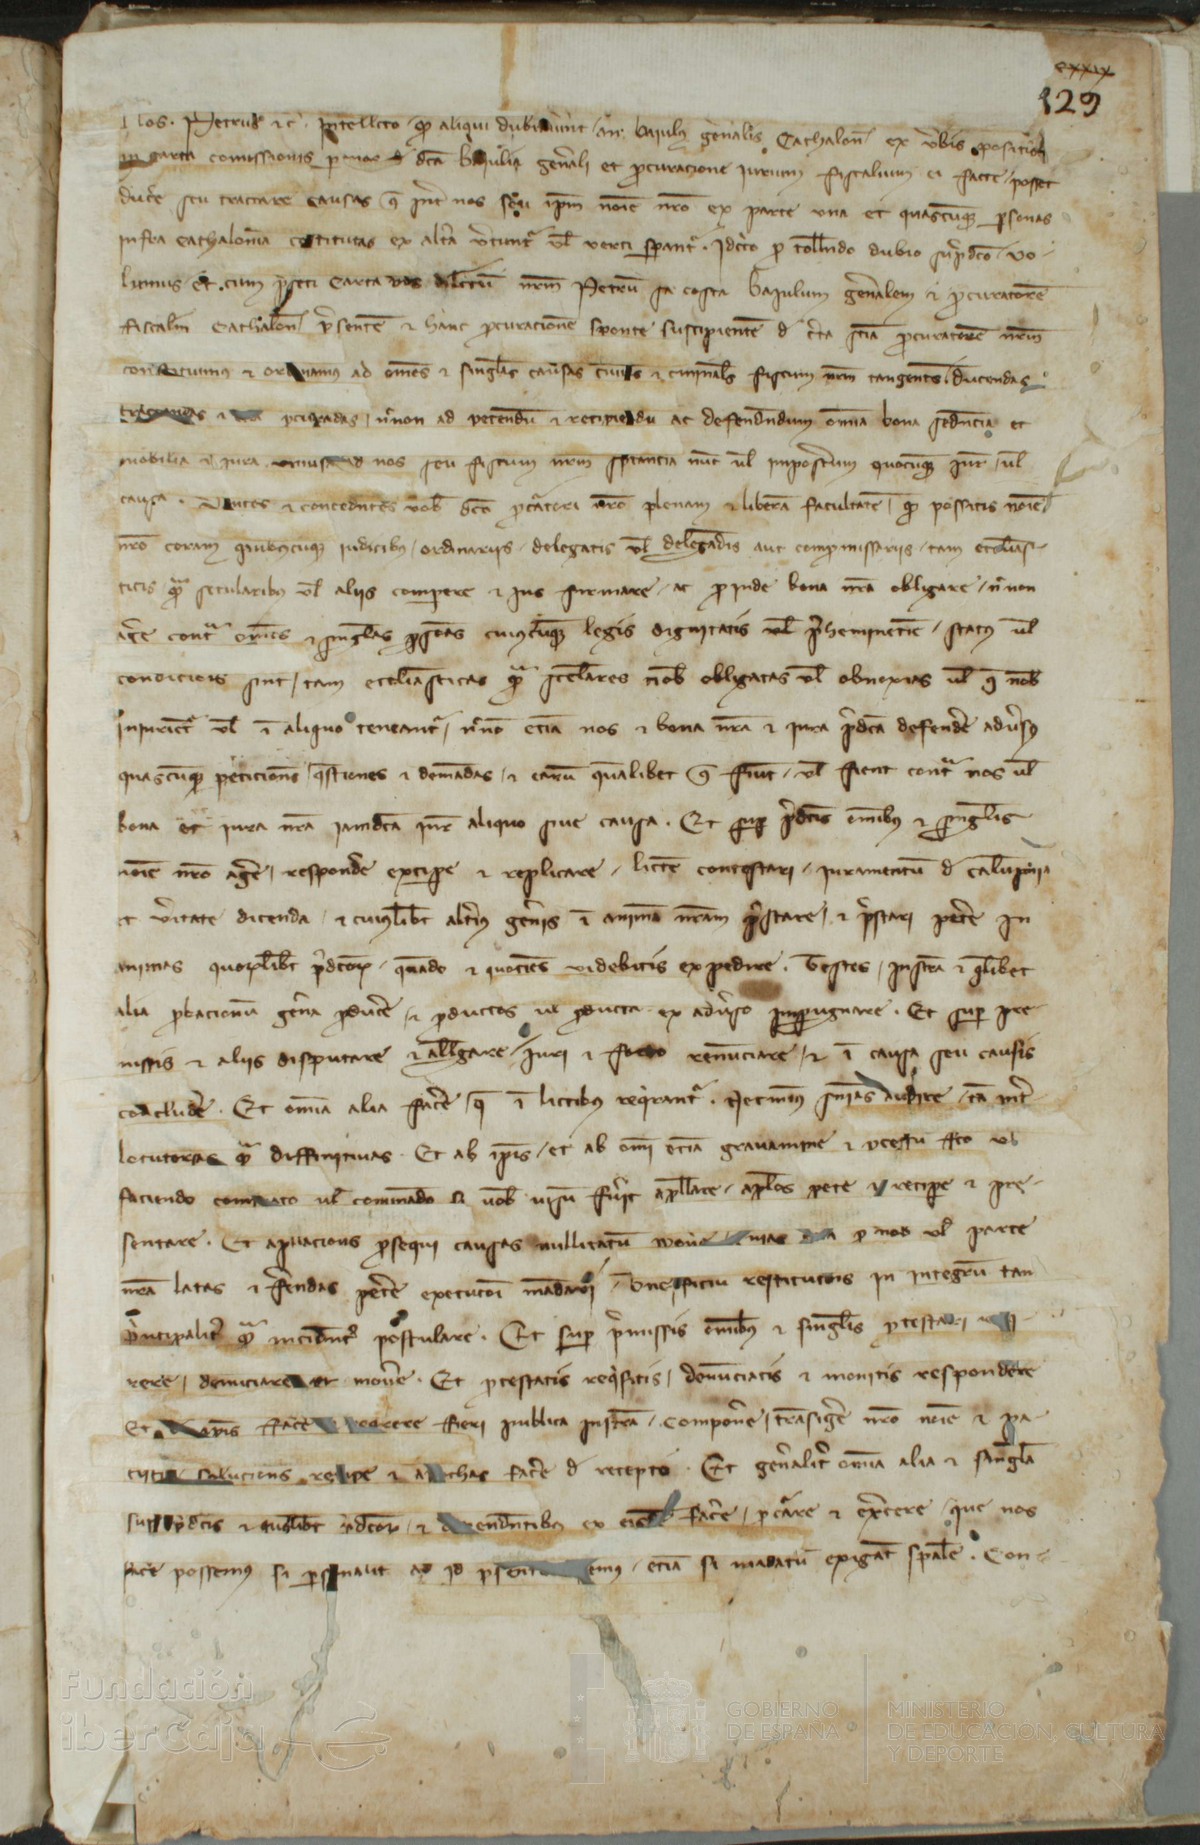 cxxix
129
Nos Petrus etc. Intellecto quod aliqui dubitaverunt an baiulus generalis Cathalonie ex verbis appositis
in carta comissionis per nos de dicta baiulia generali et procuracione iurium fiscalium ei facte posset
ducere seu tractare causas que inter nos seu ipsum nomine nostro ex parte una et quascumque personas
infra Cathaloniam constitutas ex altera vertuntur vel verti sperantur. Idcirco pro tollendo dubio supradicto vo-
lumus et cum presenti carta vos dilectum nostrum Petrum sa costa baiulum generalem et procuratorem
fiscalem Cathalonie presentem et hanc procuracionem sponte suscipientem de certa sciencia procuratorem nostrum
constituimus et ordinamus ad omnes et singulas causas civiles et criminales fiscum nostrum tangentes ducendas
et necnon ad petendum et recipiendum ac defendendum omnia bona sedencia et
mobilia et iura ad nos seu fiscum nostrum spectancia nunc vel imposterum quocumque iure vel
causa. Dantes et concedentes vobis dicto procuratori nostro plenam et liberam facultatem quod possitis nomine
nostro coram quibuscumque iudicibus ordinariis delegatis vel delegandis aut compromissariis tam ecclesias-
ticis quam secularibus vel aliis comparere et ius firmare ac proinde bona nostra obligare necnon
agere contra omnes et singulas personas cuiuscumque legis dignitatis vel preheminencie status vel
condicionis sint tam ecclesiasticas quam seculares nobis obligatas vel obnoxias vel que nobis
iniurientur vel in aliquo teneantur necnon etiam nos et bona nostra et iura predicta defendere adversus
quascumque peticiones questiones et demandas et earum quamlibet que fiunt vel fient contra nos vel
bona et iura nostra iamdicta iure aliquo sive causa. Et super predictis omnibus et singulis
nomine nostro agere respondere excipere et replicare litem contestari iuramentum de calumpnia
et veritate dicenda et cuiuslibet alterius generis in animam nostram prestare et prestari petere in
animas quorumlibet predictorum quando et quociens videbitis expedire. Testes instrumenta et quelibet
alia probacionum genera producere et productos vel producta ex adverso impugnare. Et super pre-
missis et aliis disputare et allegare iuri et foro renunciare et in causa seu causis
concludere. Et omnia alia facere que in litibus requirantur. Necnon sentencias audire tam inter-
locutorias quam diffinitivas. Et ab ipsis et ab omni etiam gravamine et processu facto vel
faciendo vel comminando si vobis visum fuerit appellare apostolos petere et recipere et pre-
sentare. Et apellaciones prosequi causas nullitatum movere per nos vel parte
nostra latas et ferendas petere execucioni mandari. Beneficium restitucionis in integrum tam
principaliter quam incidenter postulare. Et super premissis omnibus et singulis protestari
rere denunciare et monere. Et protestatis requisitis denunciatis et monitis respondere
Et facere fieri publica instrumenta. Componere transigere nostro nomine et pa-
cisci soluciones recipere et apochas facere de recepto. Et generaliter omnia alia et singula
super predictis et quolibet predictorum et dependentibus ex eisdem facere procurare et exercere que nos
facere possemus si personaliter ad id etiam si mandatum exigant speciale. Con-
Fundación
iberCaja
GOBIERNO
DE ESPAÑA
MINISTERIO
DE EDUCACIÓN, CULTURA
Y DEPORTE